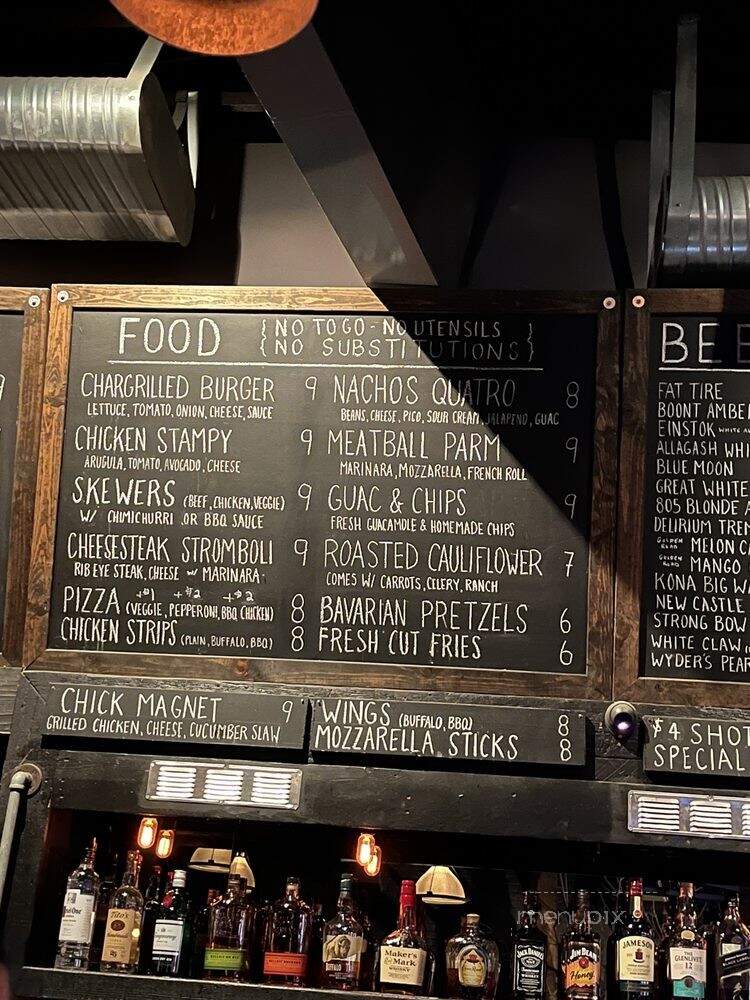 FOOD
{ NO TO GO - NO UTENSILS }
{ NO SUBSTITUTIONS }
CHARGRILLED BURGER 9
LETTUCE, TOMATO, ONION, CHEESE, SAUCE
CHICKEN STAMPY 9
ARUGULA, TOMATO, AVOCADO, CHEESE
SKEWERS (BEEF, CHICKEN, VEGGIE) 9
W/ CHIMICHURRI OR BBQ SAUCE
CHEESESTEAK STROMBOLI 9
RIB EYE STEAK, CHEESE W/ MARINARA
+1 +2 +2
PIZZA (VEGGIE, PEPPERONI, BBQ CHICKEN) 8
CHICKEN STRIPS (PLAIN, BUFFALO, BBQ) 8
NACHOS QUATRO 8
BEANS, CHEESE, PICO, SOUR CREAM, JALAPENO, GUAC
MEATBALL PARM 9
MARINARA, MOZZARELLA, FRENCH ROLL
GUAC & CHIPS 9
FRESH GUACAMOLE & HOMEMADE CHIPS
ROASTED CAULIFLOWER 7
COMES W/ CARROTS, CELERY, RANCH
BAVARIAN PRETZELS 6
FRESH CUT FRIES 6
CHICK MAGNET 9
GRILLED CHICKEN, CHEESE, CUCUMBER SLAW
WINGS (BUFFALO, BBQ) 8
MOZZARELLA STICKS 8
BEE
FAT TIRE
BOONT AMBE
EINSTOK WHITE A
ALLAGASH WHI
BLUE MOON
GREAT WHITE
805 BLONDE A
DELIRIUM TREM
GOLDEN ROAD MELON C
GOLDEN ROAD MANGO
KONA BIG W
NEW CASTLE
STRONG BOW
WHITE CLAW
WYDER'S PEAR
$4 SHOT
SPECIAL
Tito's
BUFFALO
Maker's Mark
JACK DANIEL'S
JIM BEAM
Honey
JAMESON
THE GLENLIVET
12
menupix